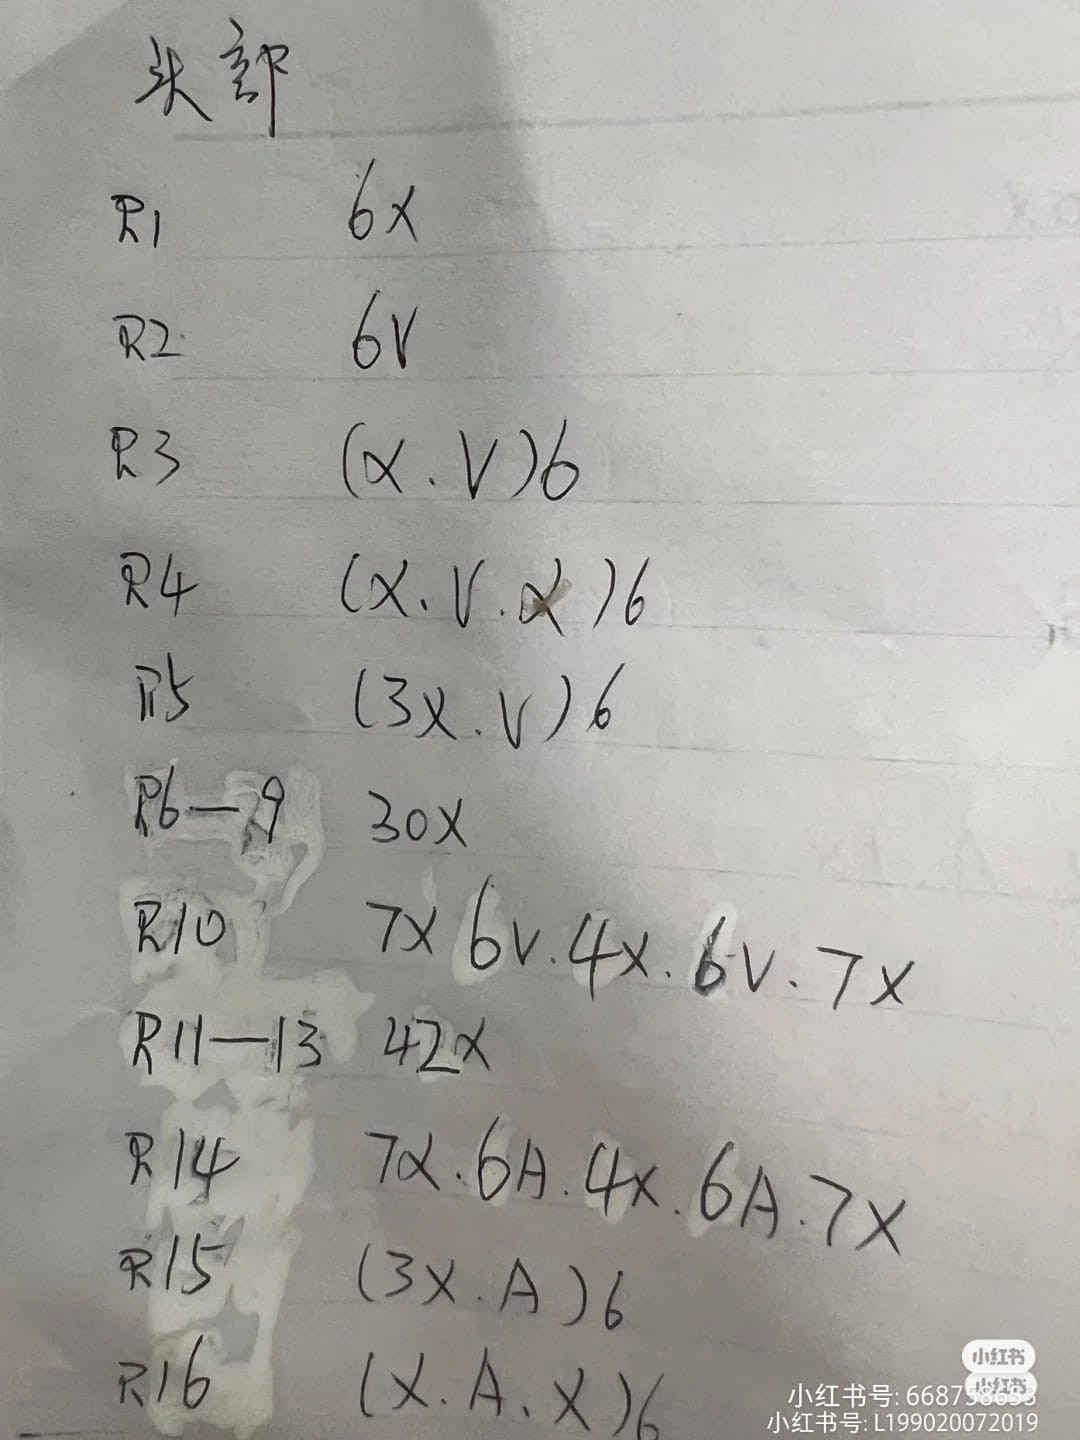 头部
R1 6X
R2 6V
R3 (X.V)6
R4 (X.V.X)6
R5 (3X.V)6
R6—9 30X
R10 7X 6V.4X.6V.7X
R11—13 42X
R14 7X.6A.4X.6A.7X
R15 (3X.A)6
R16 (X.A.X)6
小红书
小红书
小红书号: 668758653
小红书号: L199020072019